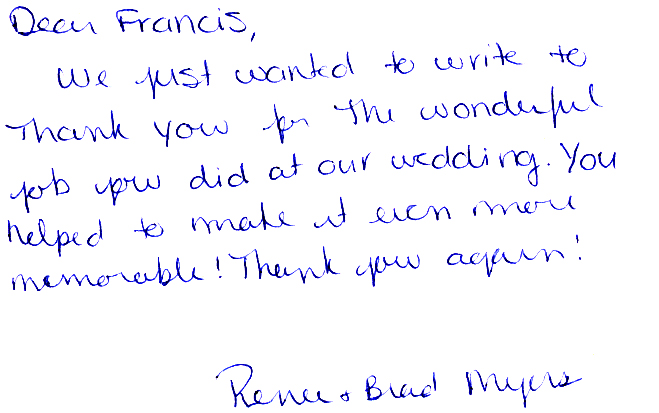 Dear Francis,
We just wanted to write to
Thank you for the wonderful
job you did at our wedding. You
helped to make it even more
memorable! Thank you again!
Renee + Brad Myers